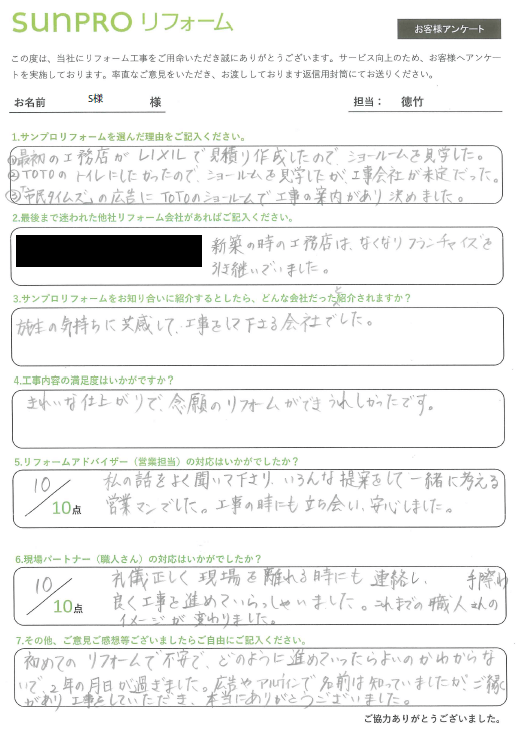 SUNPRO リフォーム
お客様アンケート
この度は、当社にリフォーム工事をご用命いただき誠にありがとうございます。サービス向上のため、お客様へアンケー
トを実施しております。率直なご意見をいただき、お渡ししております返信用封筒にてお送りください。
お名前 S様 様 担当： 徳竹
1.サンプロリフォームを選んだ理由をご記入ください。
①最初の工務店がLIXILで見積り作成したので、ショールームを見学した。
②TOTOのトイレにしたかったので、ショールームを見学したが、工事会社が未定だった。
③「市民タイムズ」の広告にTOTOのショールームで工事の案内があり決めました。
2.最後まで迷われた他社リフォーム会社があればご記入ください。
新築の時の工務店は、なくなりフランチャイズを
引き継いでいました。
3.サンプロリフォームをお知り合いに紹介するとしたら、どんな会社だったと紹介されますか？
施主の気持ちに共感して、工事をして下さる会社でした。
4.工事内容の満足度はいかがですか？
きれいな仕上がりで、念願のリフォームができうれしかったです。
5.リフォームアドバイザー（営業担当）の対応はいかがでしたか？
10/10点
私の話をよく聞いて下さり、いろんな提案をして一緒に考える
営業マンでした。工事の時にも立ち会い、安心しました。
6.現場パートナー（職人さん）の対応はいかがでしたか？
10/10点
礼儀正しく現場を離れる時にも連絡し、手際わ
良く工事を進めていらっしゃいました。これまでの職人さんの
イメージが変わりました。
7.その他、ご意見ご感想等ございましたらご自由にご記入ください。
初めてのリフォームで不安で、どのように進めていったらよいのかわからな
いで、2年の月日が過ぎました。広告やアルウィンで名前は知っていましたが、ご縁
があり工事をしていただき、本当にありがとうございました。
ご協力ありがとうございました。